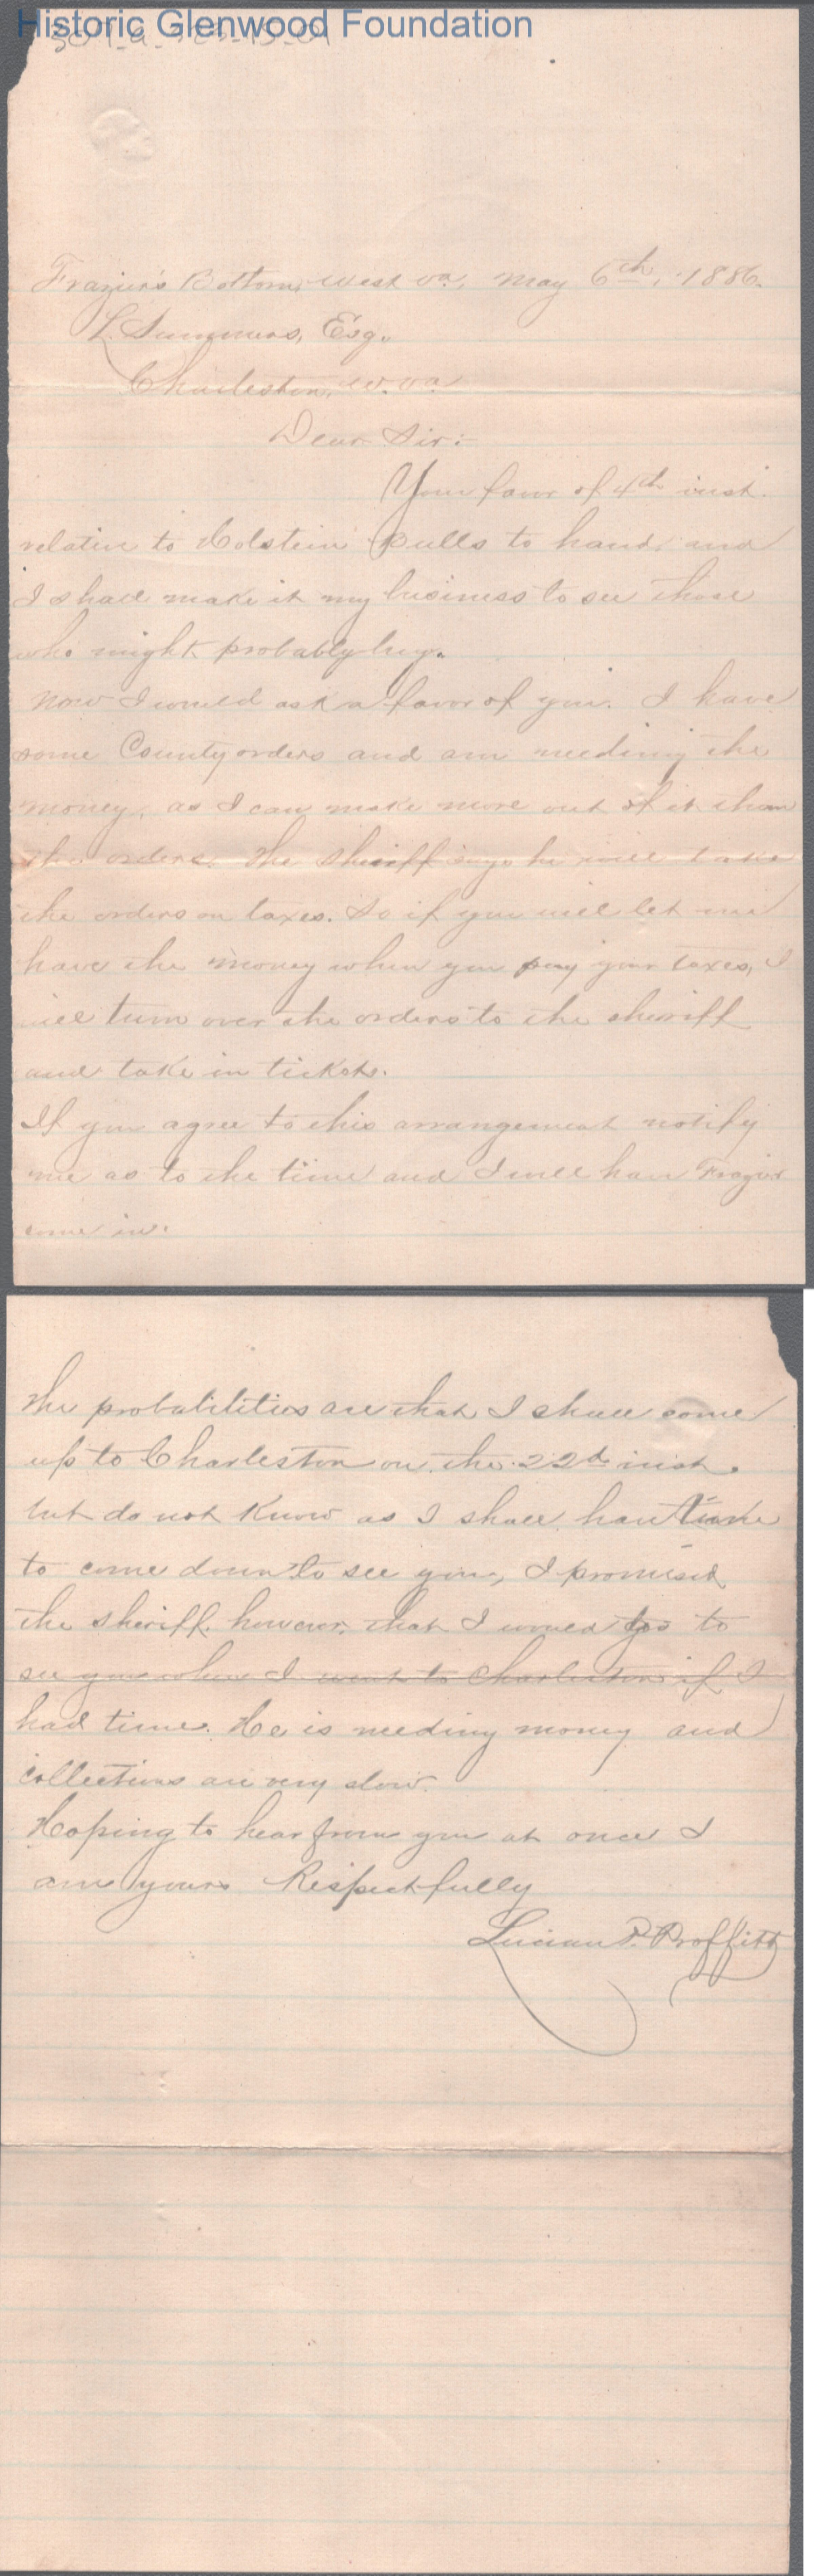 Historic Glenwood Foundation
Frazier's Bottom, West Va, May 6th, 1886.
L. Summers, Esq.
Charleston, W. Va.
Dear Sir:-
Your favor of 4th inst.
relative to Holstein Bulls to hand, and
I shall make it my business to see those
who might probably buy.
Now I would ask a favor of you. I have
some County orders and am needing the
money, as I can make more out of it than
the orders. The sheriff says he will take
the orders on taxes. So if you will let me
have the money when you pay your taxes, I
will turn over the orders to the sheriff
and take in tickets.
If you agree to this arrangement notify
me as to the time and I will have Frazier
come in.
The probabilities are that I shall come
up to Charleston on the 22d inst.
but do not know as I shall have time
to come down to see you, I promised
the sheriff, however, that I would go to
see you when I went to Charleston if I
had time. He is needing money and
collections are very slow.
Hoping to hear from you at once I
am yours Respectfully
Lucian P. Proffitt